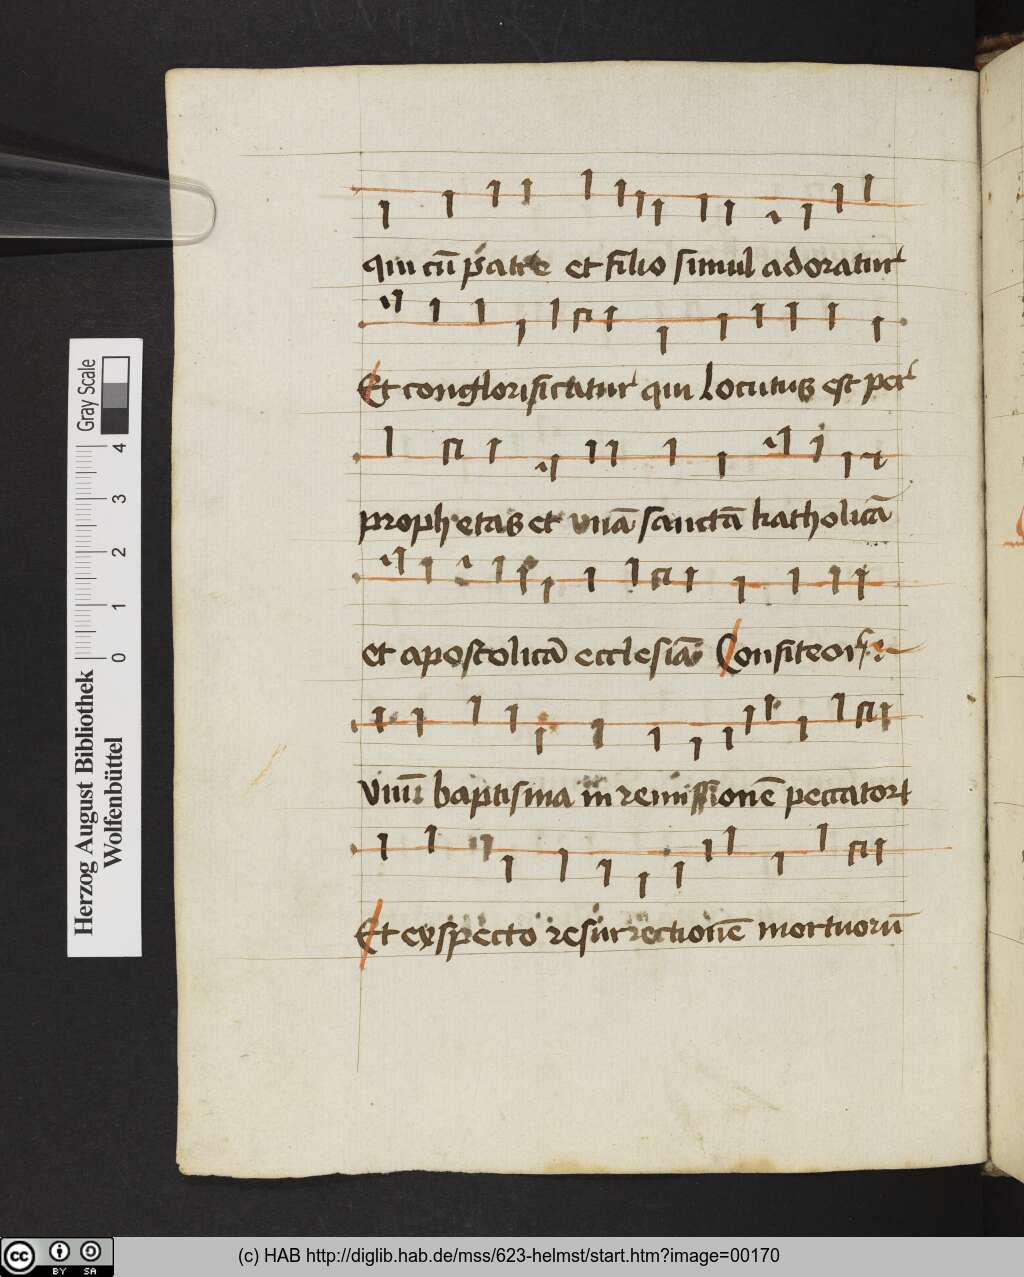 qui cū patre et filio simul adoratur
Et conglorificatur qui locutus est per
prophetas et vnā sanctā katholicā
et apostolicā ecclesiā Confiteor
vnū baptisma in remissionē peccator
Et exspecto resurrectionē mortuorū
Gray Scale
0 1 2 3 4
Herzog August Bibliothek
Wolfenbüttel
cc BY SA
(c) HAB http://diglib.hab.de/mss/623-helmst/start.htm?image=00170